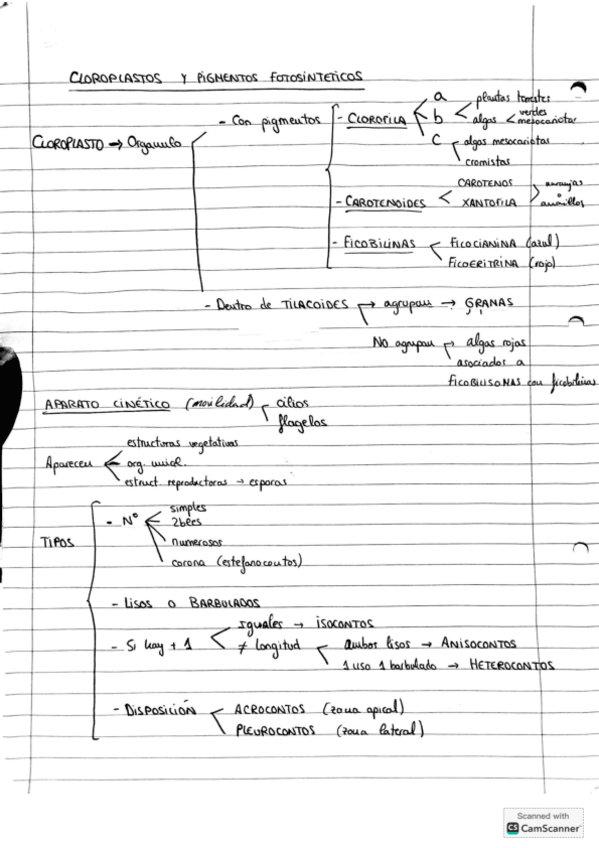 CLOROPLASTOS Y PIGMENTOS FOTOSINTETICOS
CLOROPLASTO → Organulo
- Con pigmentos
- CLOROFILA
a
b
plantas terrestres
algas
verdes
mesocariotas
c
algas mesocariotas
cromistas
- CAROTENOIDES
CAROTENOS
XANTOFILA
naranjas
amarillos
- FICOBILINAS
FICOCIANINA (azul)
FICOERITRINA (rojo)
- Dentro de TILACOIDES → agrupan → GRANAS
NO agrupan → algas rojas
asociados a
FICOBILISOMAS con ficobilinas
APARATO CINÉTICO (movilidad)
cilios
flagelos
Aparecen
estructuras vegetativas
org. unicel.
estruct. reproductoras → esporas
TIPOS
- Nº
simples
numerosos
corona (estefanocontos)
- LISOS O BARBULADOS
- Si hay + 1
iguales → ISOCONTOS
≠ longitud
ambos lisos → ANISOCONTOS
1 liso 1 barbulado → HETEROCONTOS
- DISPOSICIÓN
ACROCONTOS (zona apical)
PLEUROCONTOS (zona lateral)
Scanned with
CS CamScanner